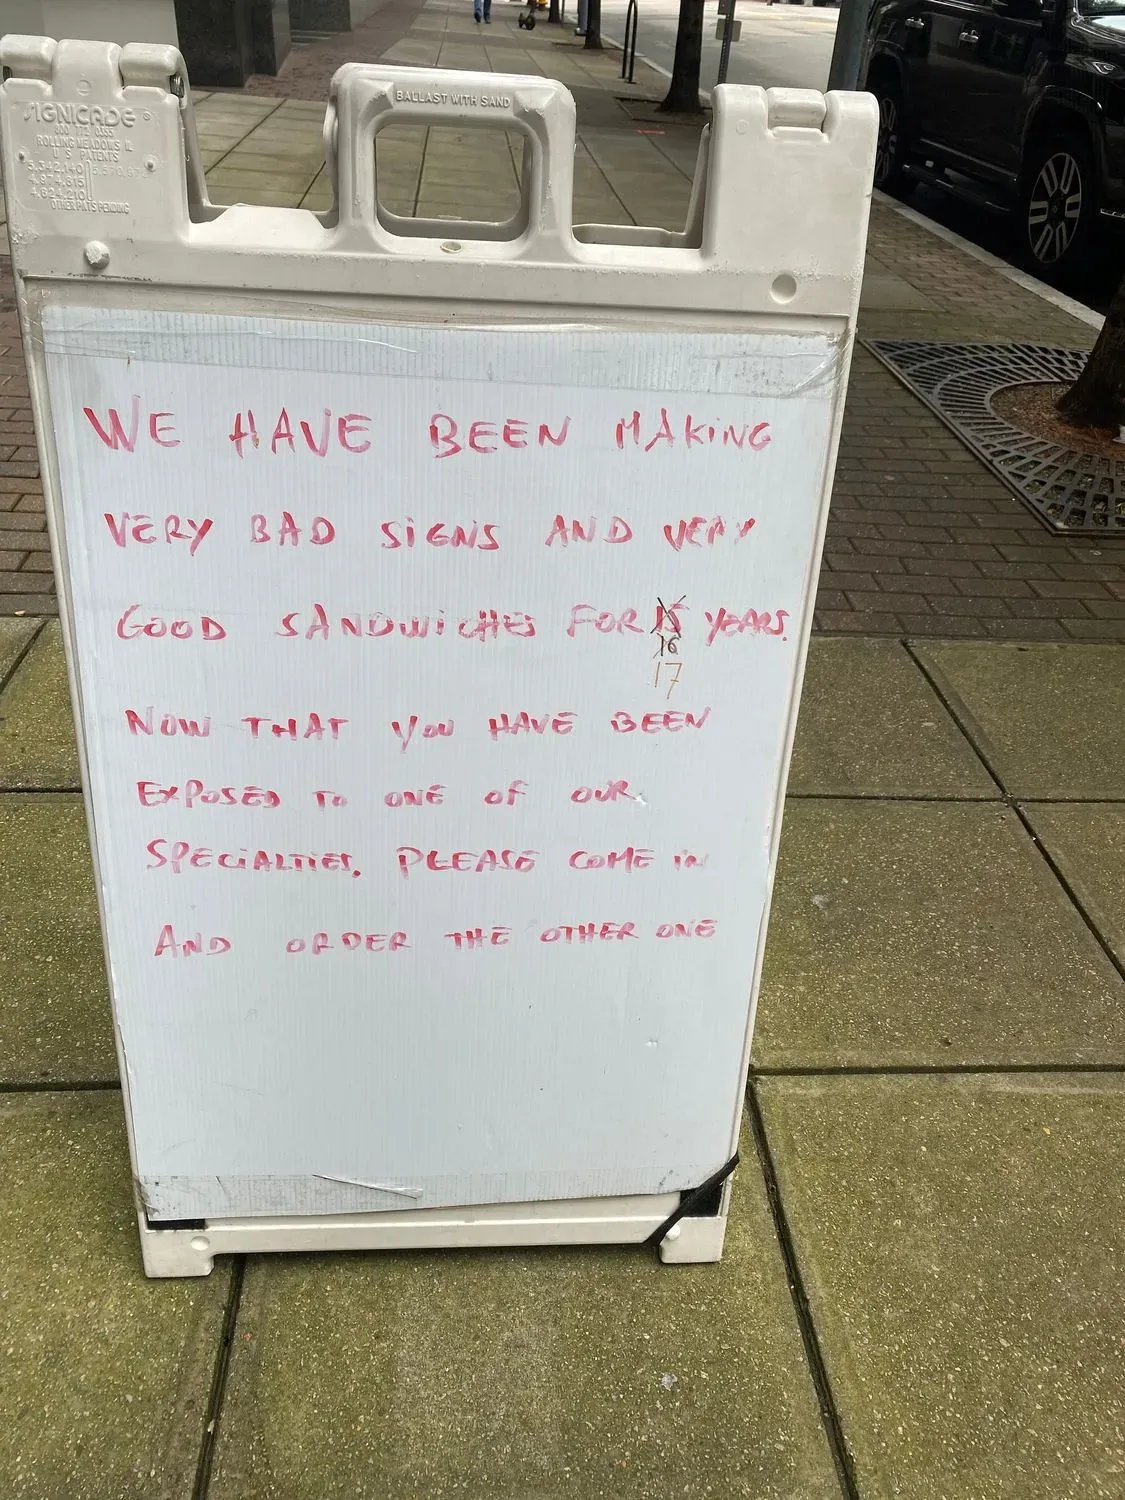 SIGNICADE
800 772 0355
ROLLING MEADOWS IL
U S PATENTS
OTHER PATS PENDING
BALLAST WITH SAND
WE HAVE BEEN MAKING
VERY BAD SIGNS AND VERY
GOOD SANDWICHES FOR 15 YEARS.
16
17
NOW THAT YOU HAVE BEEN
EXPOSED TO ONE OF OUR
SPECIALTIES. PLEASE COME IN
AND ORDER THE OTHER ONE